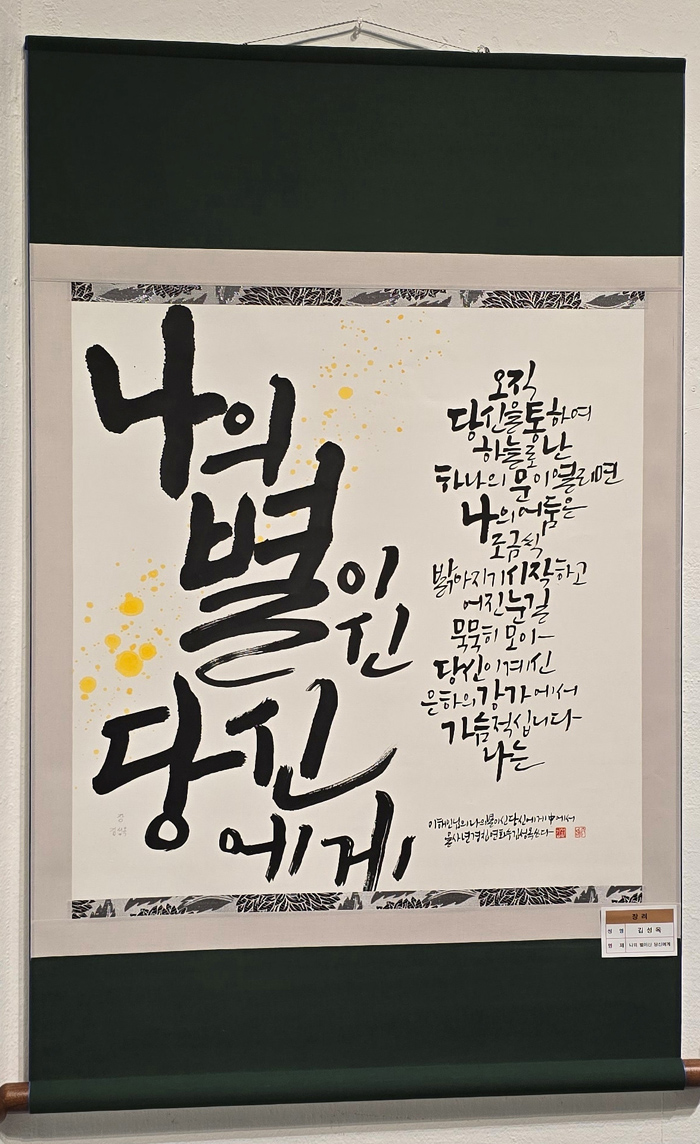 나의
별이신
당신
에게
오직
당신을 통하여
하늘로 난
하나의 문이 열리면
나의 어둠은
조금씩
밝아지기 시작하고
어진 눈길
묵묵히 모아
당신이 계신
은하의 강가에서
가슴 적십니다
나는
이해인님의 나의 별이신 당신에게 中에서
을사년 김성옥 쓰다
장려
성 명 김성옥
명 제 나의 별이신 당신에게